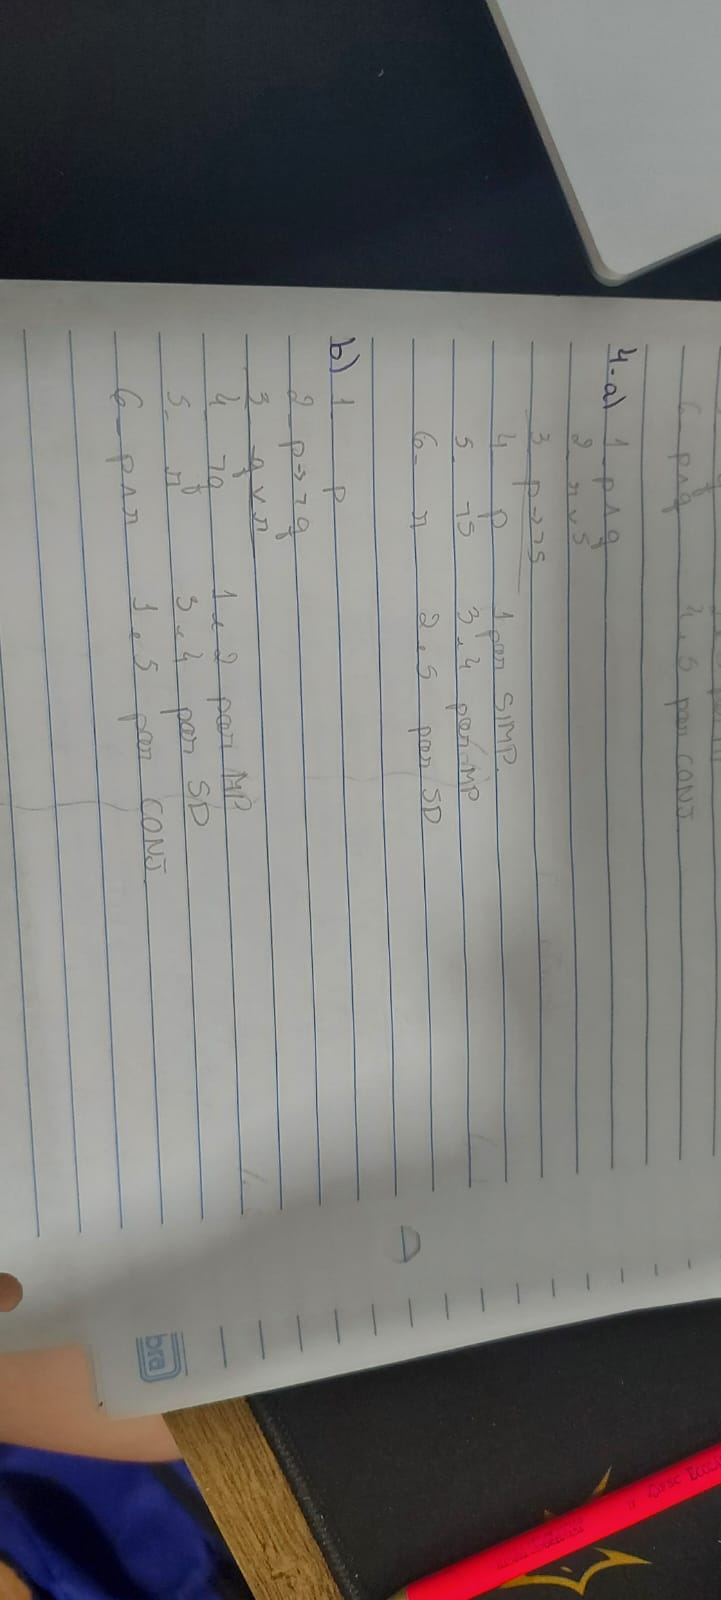 6- p∧q 4 e 5 por CONJ.
4-a) 1- p∧q
2- r∨s
3 p→¬s
4 p 1 por SIMP.
5 ¬s 3 e 4 por MP
6- r 2 e 5 por SD
b) 1 p
2- p→¬q
3 q∨r
4 ¬q 1 e 2 por MP
5. r 3 e 4 por SD
6- p∧r 1 e 5 por CONJ.
bra